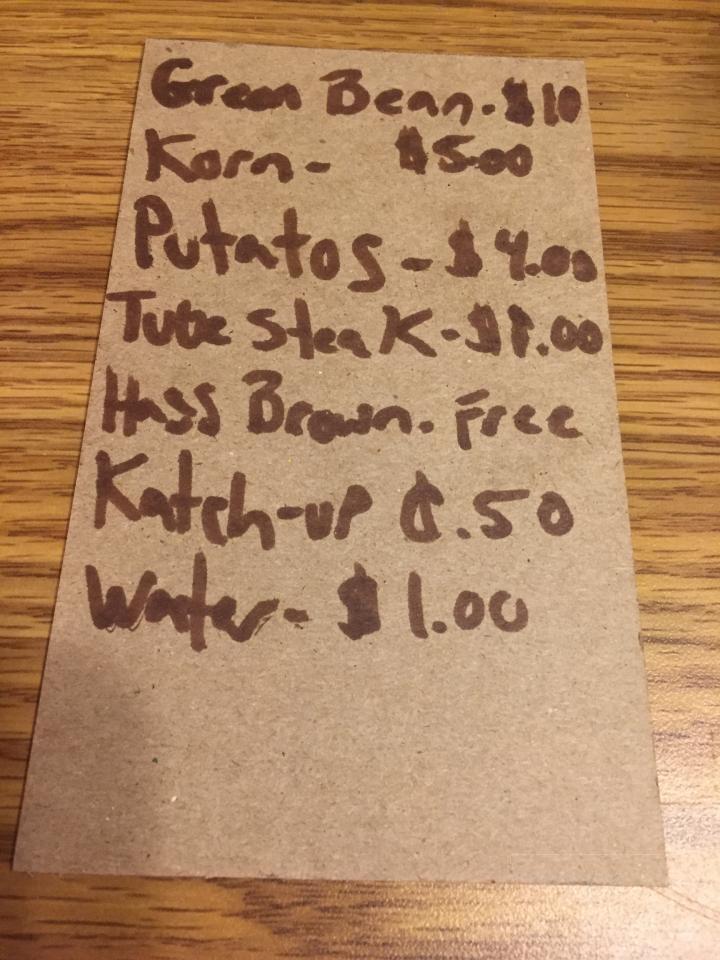 Green Bean. $10
Korn- $5.00
Putatos - $4.00
Tube Steak - $1.00
Hass Brown. Free
Katch-up ¢.50
Water- $1.00